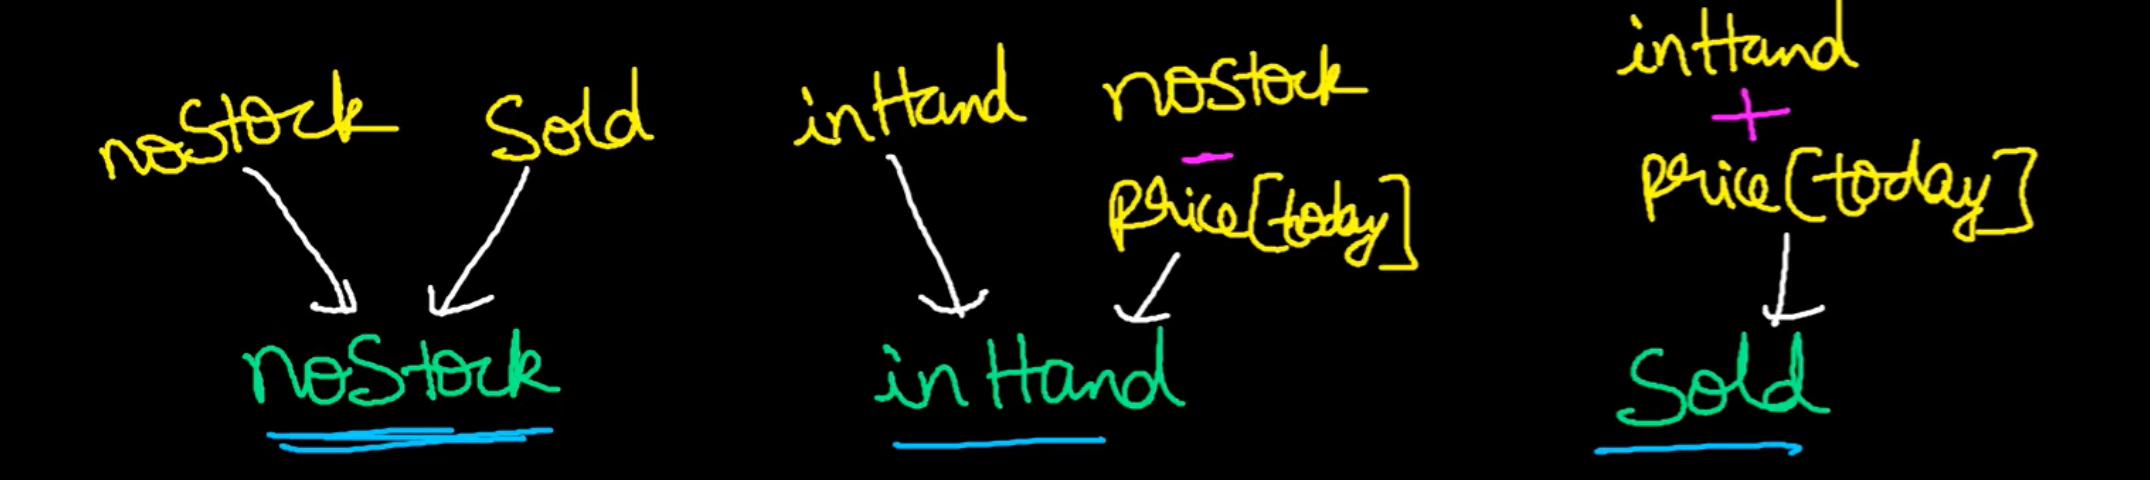 noStock Sold
noStock
inHand noStock
-
price[today]
inHand
inHand
+
price[today]
Sold